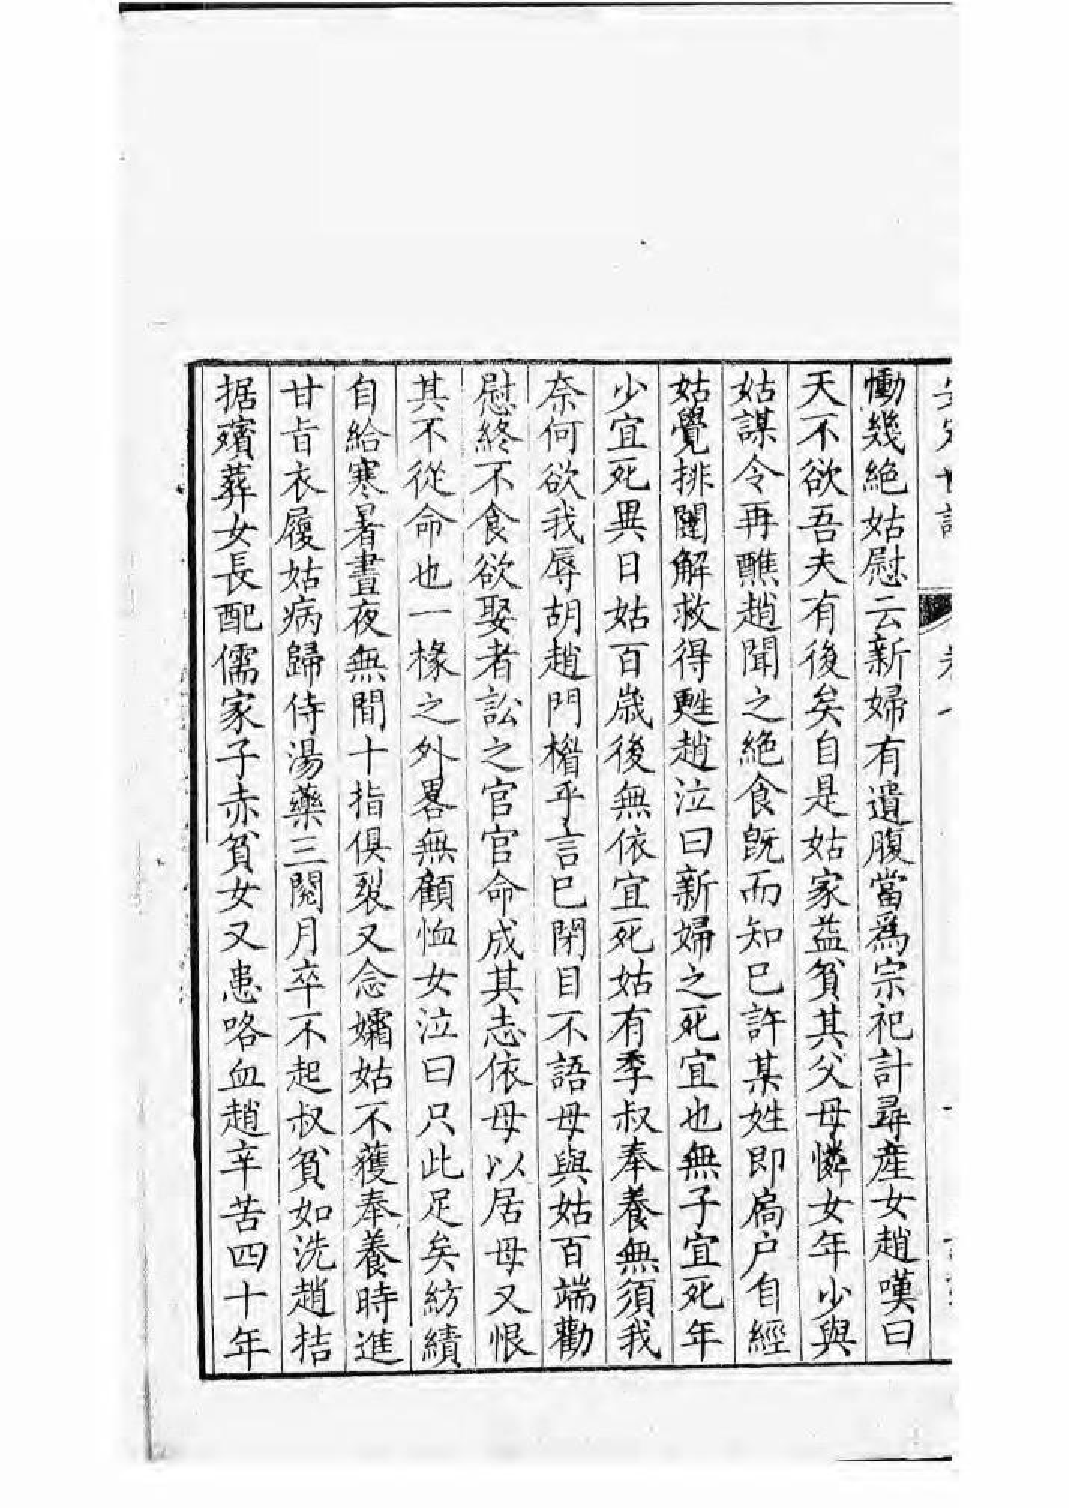 慟幾絶姑慰云新婦有遺腹當爲宗祀計尋產女趙嘆曰
天不欲吾夫有後矣自是姑家益貧其父母憐女年少與
姑謀令再醮趙聞之絶食旣而知已許某姓即扃户自經
姑覺排闥解救得甦趙泣曰新婦之死宜也無子宜死年
少宜死異日姑百歲後無依宜死姑有季叔奉養無須我
奈何欲我辱胡趙門楣乎言已閉目不語母與姑百端勸
慰終不食欲娶者訟之官官命成其志依母以居母又恨
其不從命也一椽之外畧無顧恤女泣曰只此足矣紡績
自給寒暑晝夜無間十指俱裂又念孀姑不獲奉養時進
甘旨衣履姑病歸侍湯藥三閱月卒不起叔貧如洗趙拮
据殯葬女長配儒家子赤貧女又患咯血趙辛苦四十年